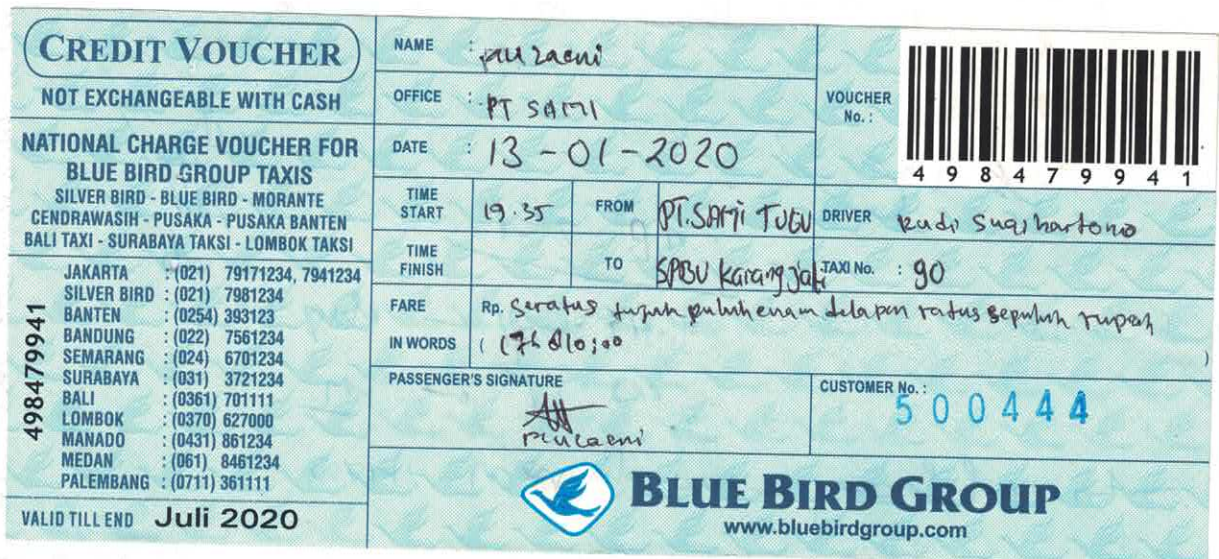 CREDIT VOUCHER
NOT EXCHANGEABLE WITH CASH
NATIONAL CHARGE VOUCHER FOR
BLUE BIRD GROUP TAXIS
SILVER BIRD - BLUE BIRD - MORANTE
CENDRAWASIH - PUSAKA - PUSAKA BANTEN
BALI TAXI - SURABAYA TAKSI - LOMBOK TAKSI
498479941
JAKARTA : (021) 79171234, 7941234
SILVER BIRD : (021) 7981234
BANTEN : (0254) 393123
BANDUNG : (022) 7561234
SEMARANG : (024) 6701234
SURABAYA : (031) 3721234
BALI : (0361) 701111
LOMBOK : (0370) 627000
MANADO : (0431) 861234
MEDAN : (061) 8461234
PALEMBANG : (0711) 361111
VALID TILL END Juli 2020
NAME :
OFFICE : PT SAMI
DATE : 13-01-2020
VOUCHER No. :
498479941
TIME START 19.35 FROM PT. SAMI TUGU DRIVER Rudi Sugihartono
TIME FINISH TO SPBU Karangjati TAXI No. : 90
FARE Rp. Seratus tujuh puluh enam delapan ratus sepuluh rupiah
IN WORDS ( 176 810,00 )
PASSENGER'S SIGNATURE
CUSTOMER No. :
500444
BLUE BIRD GROUP
www.bluebirdgroup.com